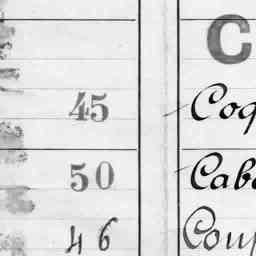 C
45 Coq
50 Cab
46 Coup